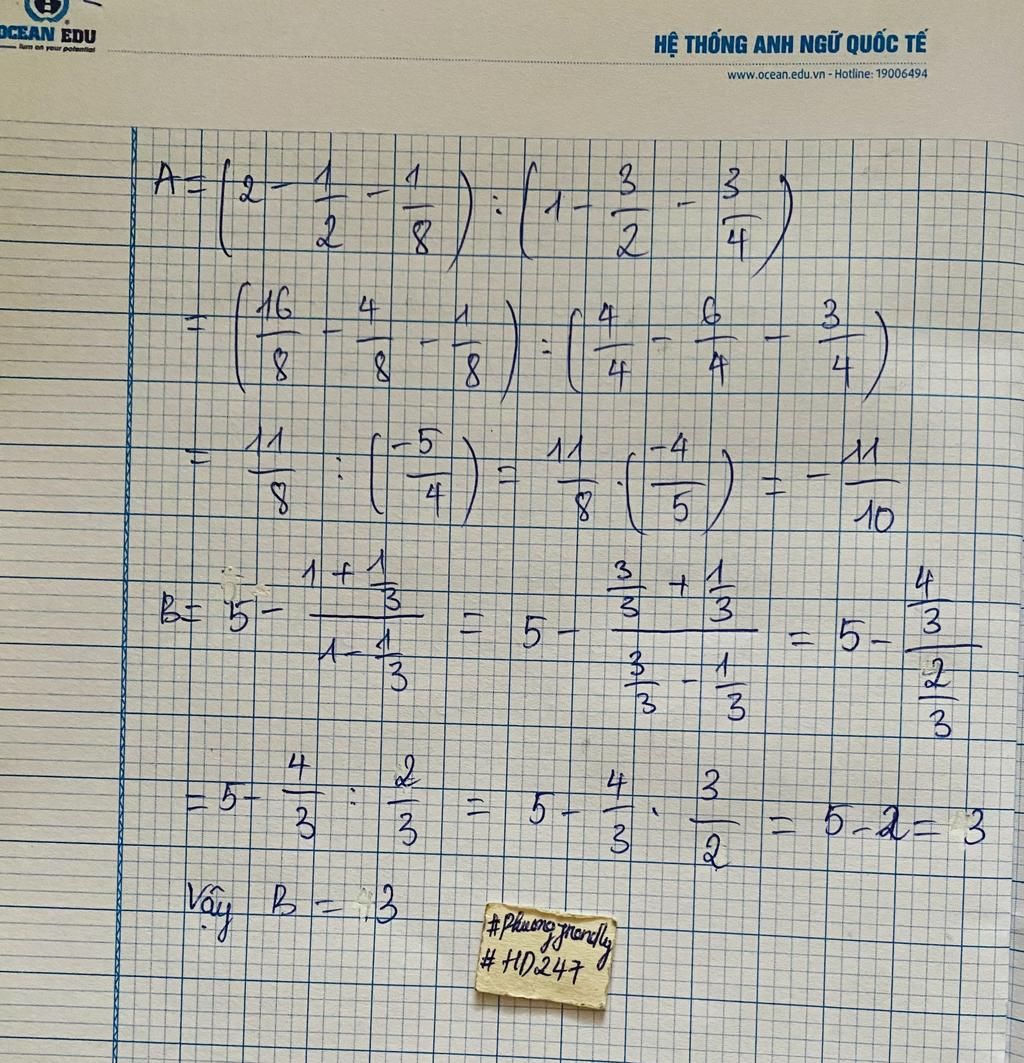 OCEAN EDU
Turn on your potential
HỆ THỐNG ANH NGỮ QUỐC TẾ
www.ocean.edu.vn - Hotline: 19006494
A = (2 - 1/2 - 1/8) : (1 - 3/2 - 3/4)
= (16/8 - 4/8 - 1/8) : (4/4 - 6/4 - 3/4)
= 11/8 : (-5/4) = 11/8 . (-4/5) = - 11/10
B = 5 - (1 + 1/3)/(1 - 1/3) = 5 - (3/3 + 1/3)/(3/3 - 1/3) = 5 - (4/3)/(2/3)
= 5 - 4/3 : 2/3 = 5 - 4/3 . 3/2 = 5 - 2 = 3
Vậy B = 3
#HD247